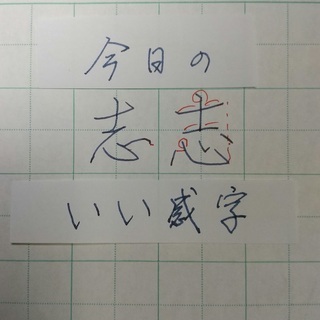 今日の
志志
いい感字